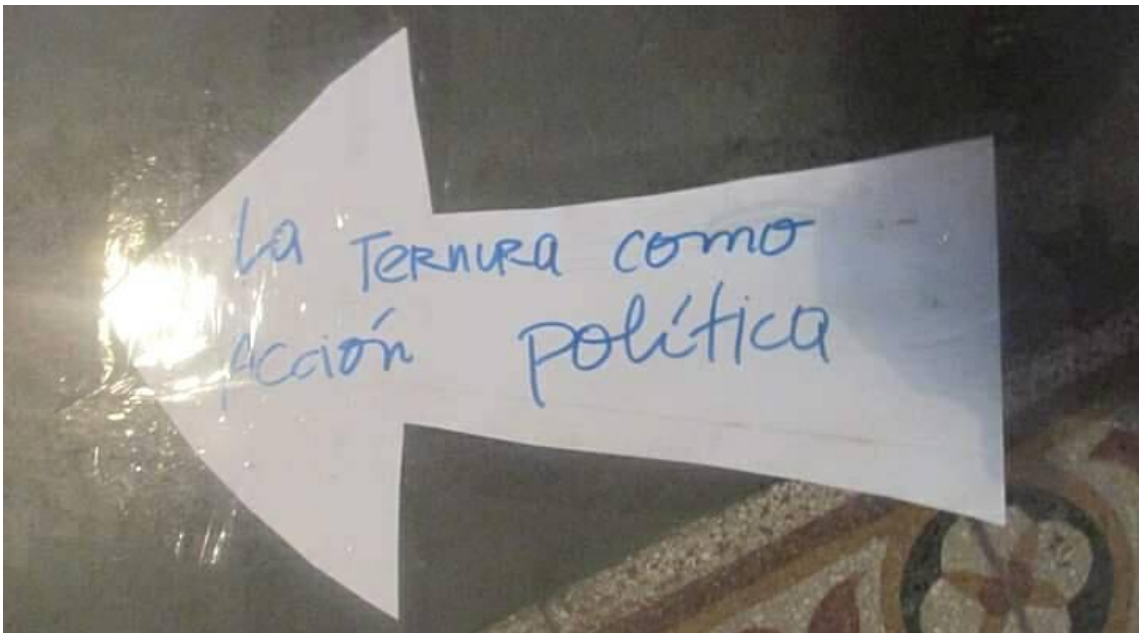 La Ternura como
Acción política